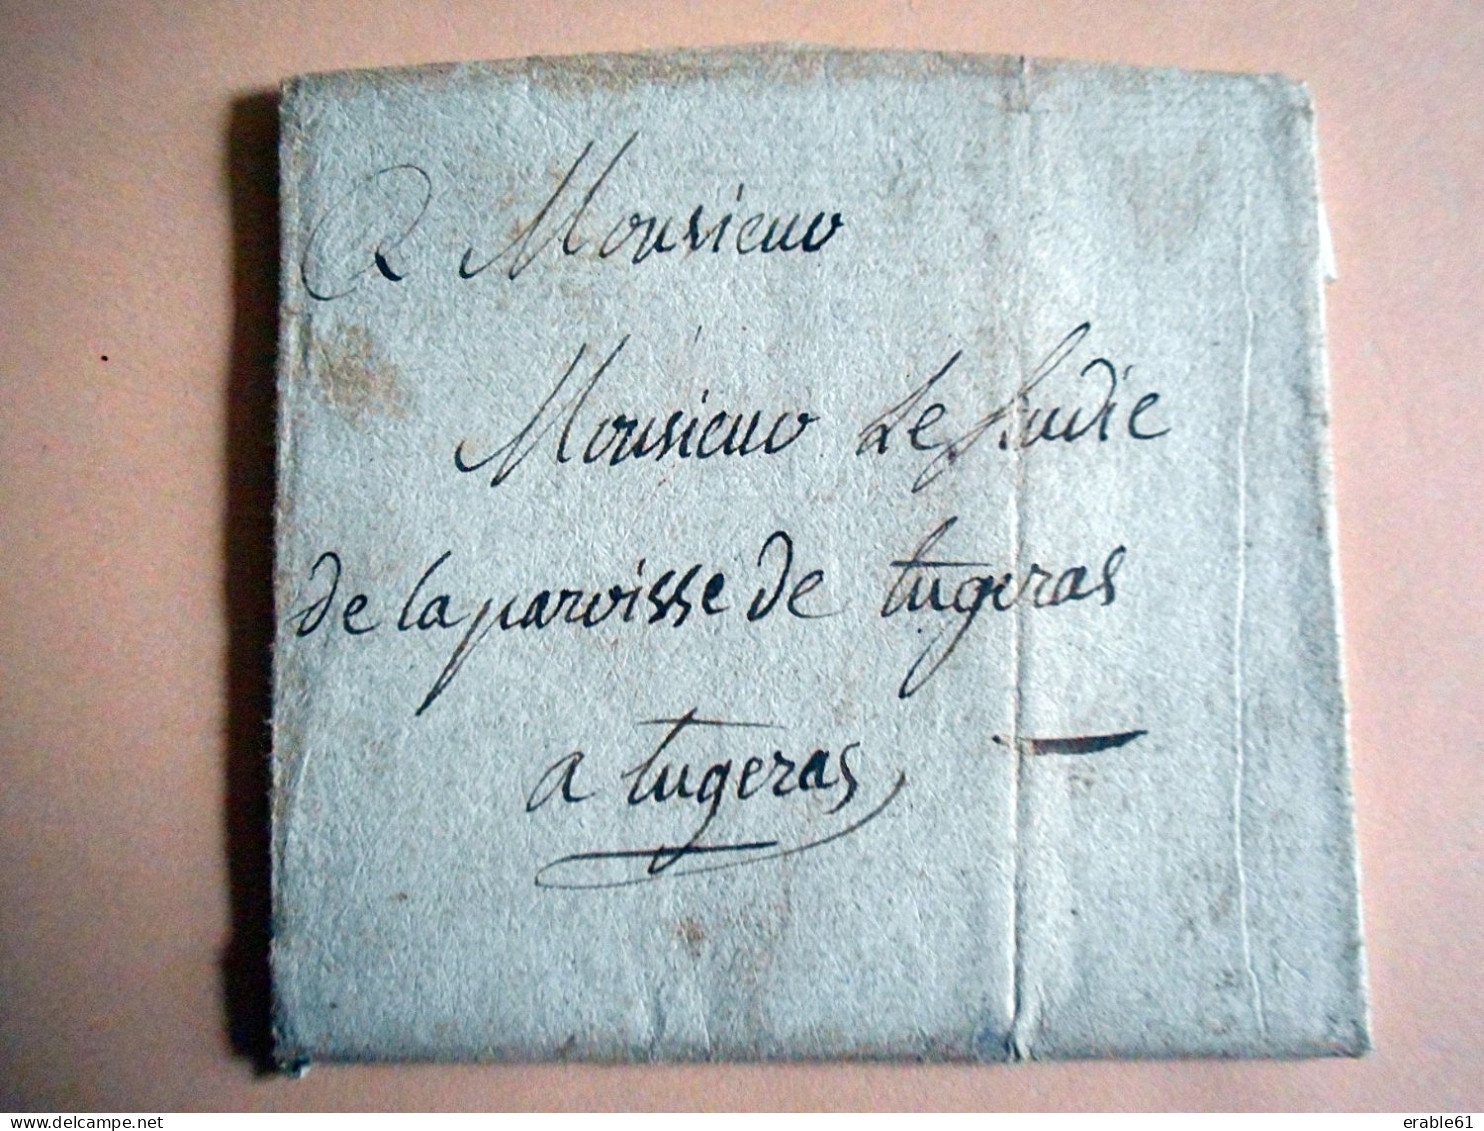 A Monsieur
Monsieur Le Sindic
de la paroisse de tugeras
a tugeras
erable61